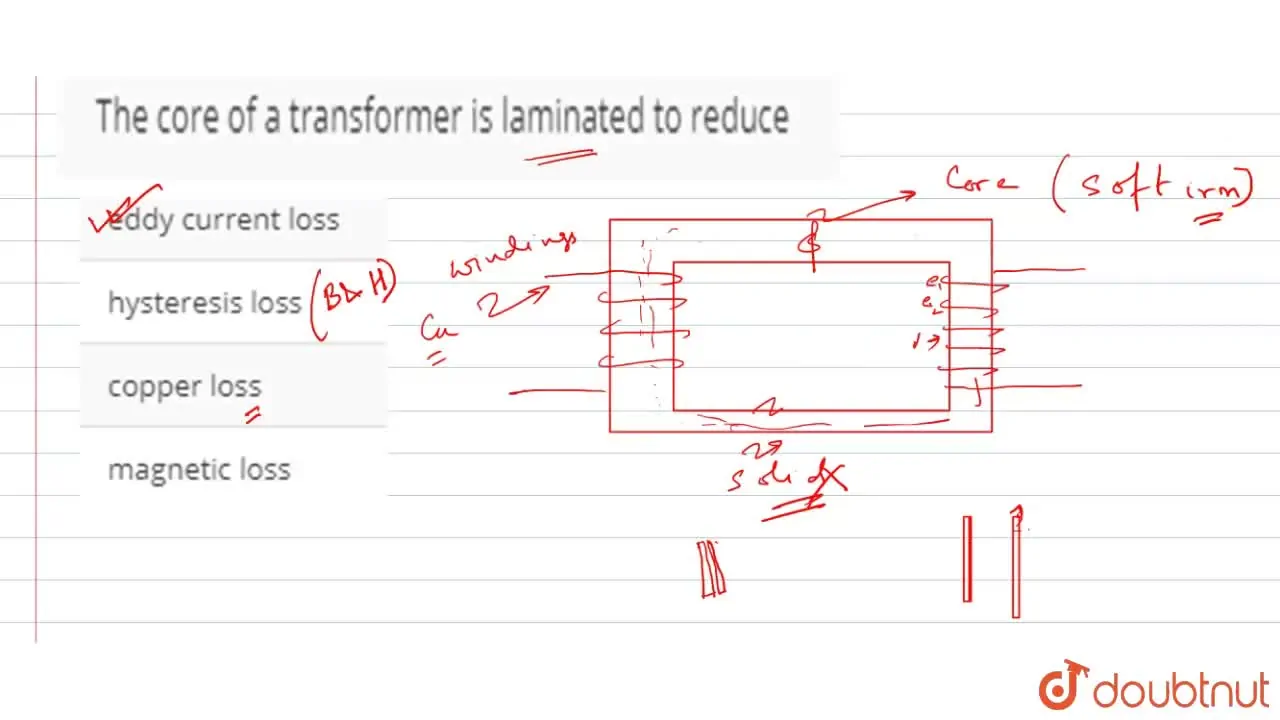 The core of a transformer is laminated to reduce
Core (soft iron)
eddy current loss
windings
hysteresis loss (B & H)
e1
e2
Cu
copper loss
magnetic loss
solid
doubtnut